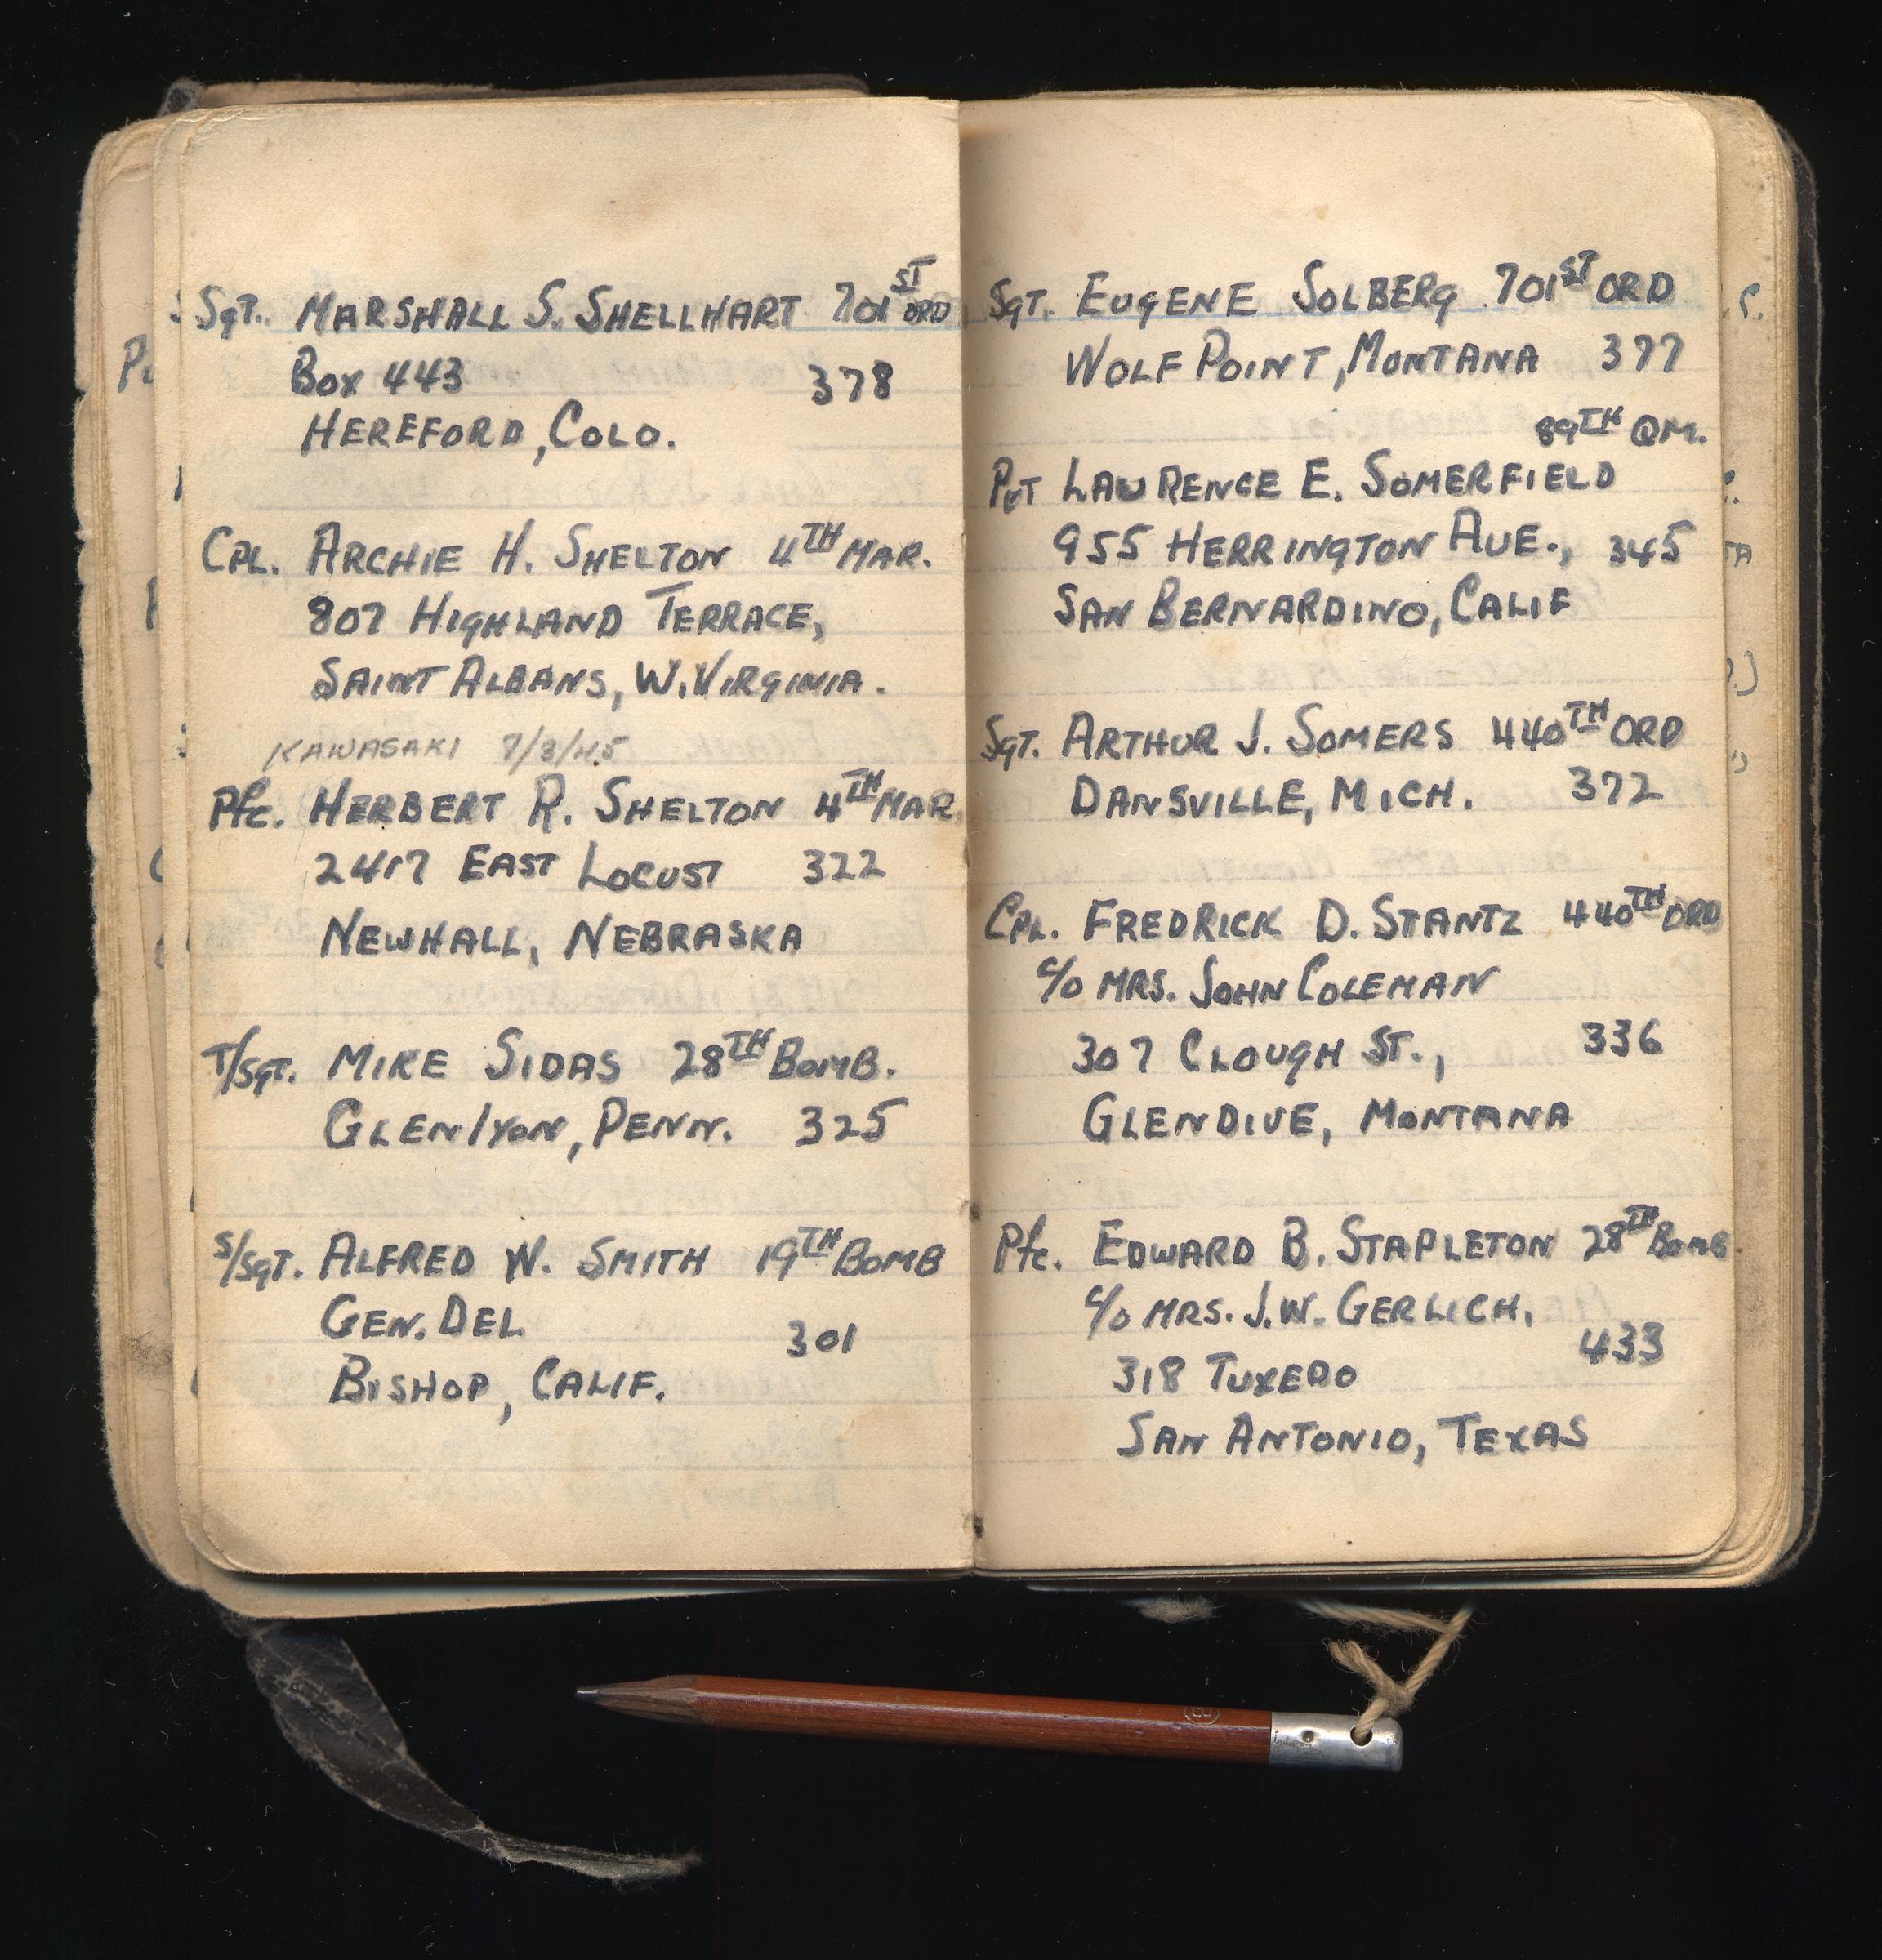 Sgt. MARSHALL S. SHELLHART 701ST ORD
BOX 443 378
HEREFORD, COLO.
CPL. ARCHIE H. SHELTON 4TH MAR.
807 HIGHLAND TERRACE,
SAINT ALBANS, W. VIRGINIA.
KAWASAKI 7/3/45
Pfc. HERBERT R. SHELTON 4TH MAR.
2417 EAST LOCUST 322
NEWHALL, NEBRASKA
T/SGT. MIKE SIDAS 28TH BOMB.
GLENLYON, PENN. 325
S/SGT. ALFRED W. SMITH 19TH BOMB
GEN. DEL
301
BISHOP, CALIF.
SGT. EUGENE SOLBERG 701ST ORD
WOLF POINT, MONTANA 377
89TH QM.
PVT LAWRENCE E. SOMERFIELD
955 HERRINGTON AVE., 345
SAN BERNARDINO, CALIF
SGT. ARTHUR J. SOMERS 440TH ORD
DANSVILLE, MICH. 372
CPL. FREDRICK D. STANTZ 440TH ORD
C/O MRS. JOHN COLEMAN
307 CLOUGH ST., 336
GLENDIVE, MONTANA
Pfc. EDWARD B. STAPLETON 28TH BOMB
C/O MRS. J.W. GERLICH,
433
318 TUXEDO
SAN ANTONIO, TEXAS